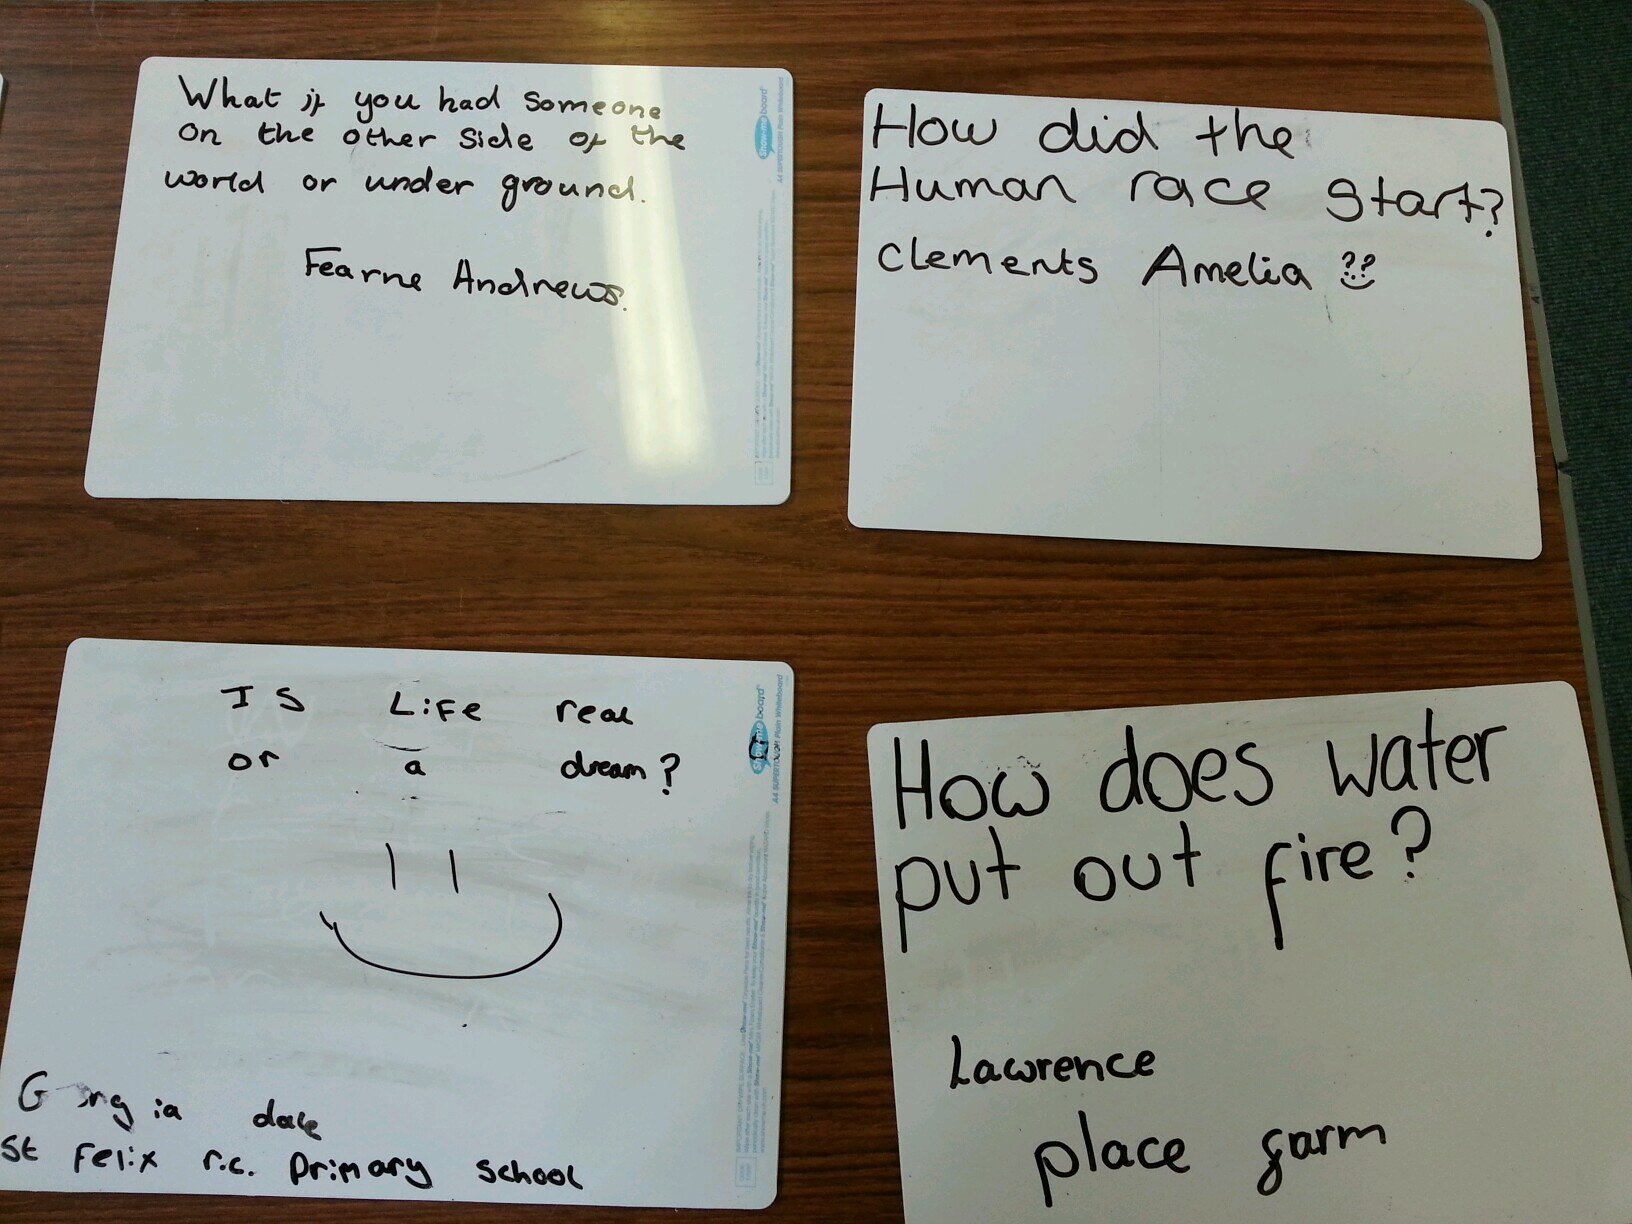 What if you had someone
on the other side of the
world or under ground.
Fearne Andrews.
Show-me board
A4 SUPERTOUGH Plain Whiteboard
How did the
Human race start?
Clements Amelia
IS LiFe real
or a dream?
Show-me board
A4 SUPERTOUGH Plain Whiteboard
Georgia dale
St Felix r.c. primary school
How does water
put out fire?
Lawrence
place farm